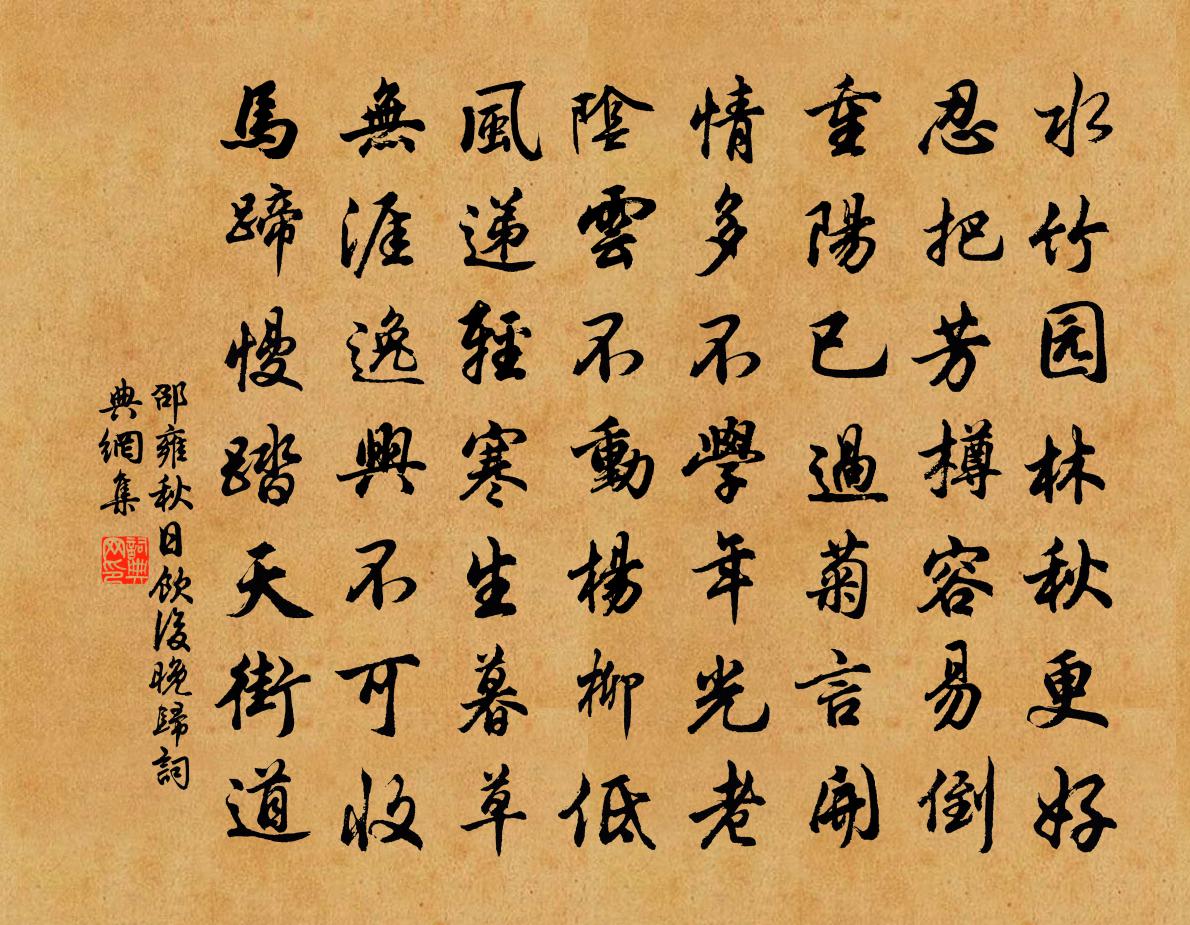 水竹园林秋更好
忍把芳樽容易倒
重陽已過菊言開
情多不學年光老
陰雲不動楊柳低
風遞輕寒生暮草
無涯逸興不可收
馬蹄慢踏天街道
邵雍秋日飲後晚歸詞
典網集
詞典网印